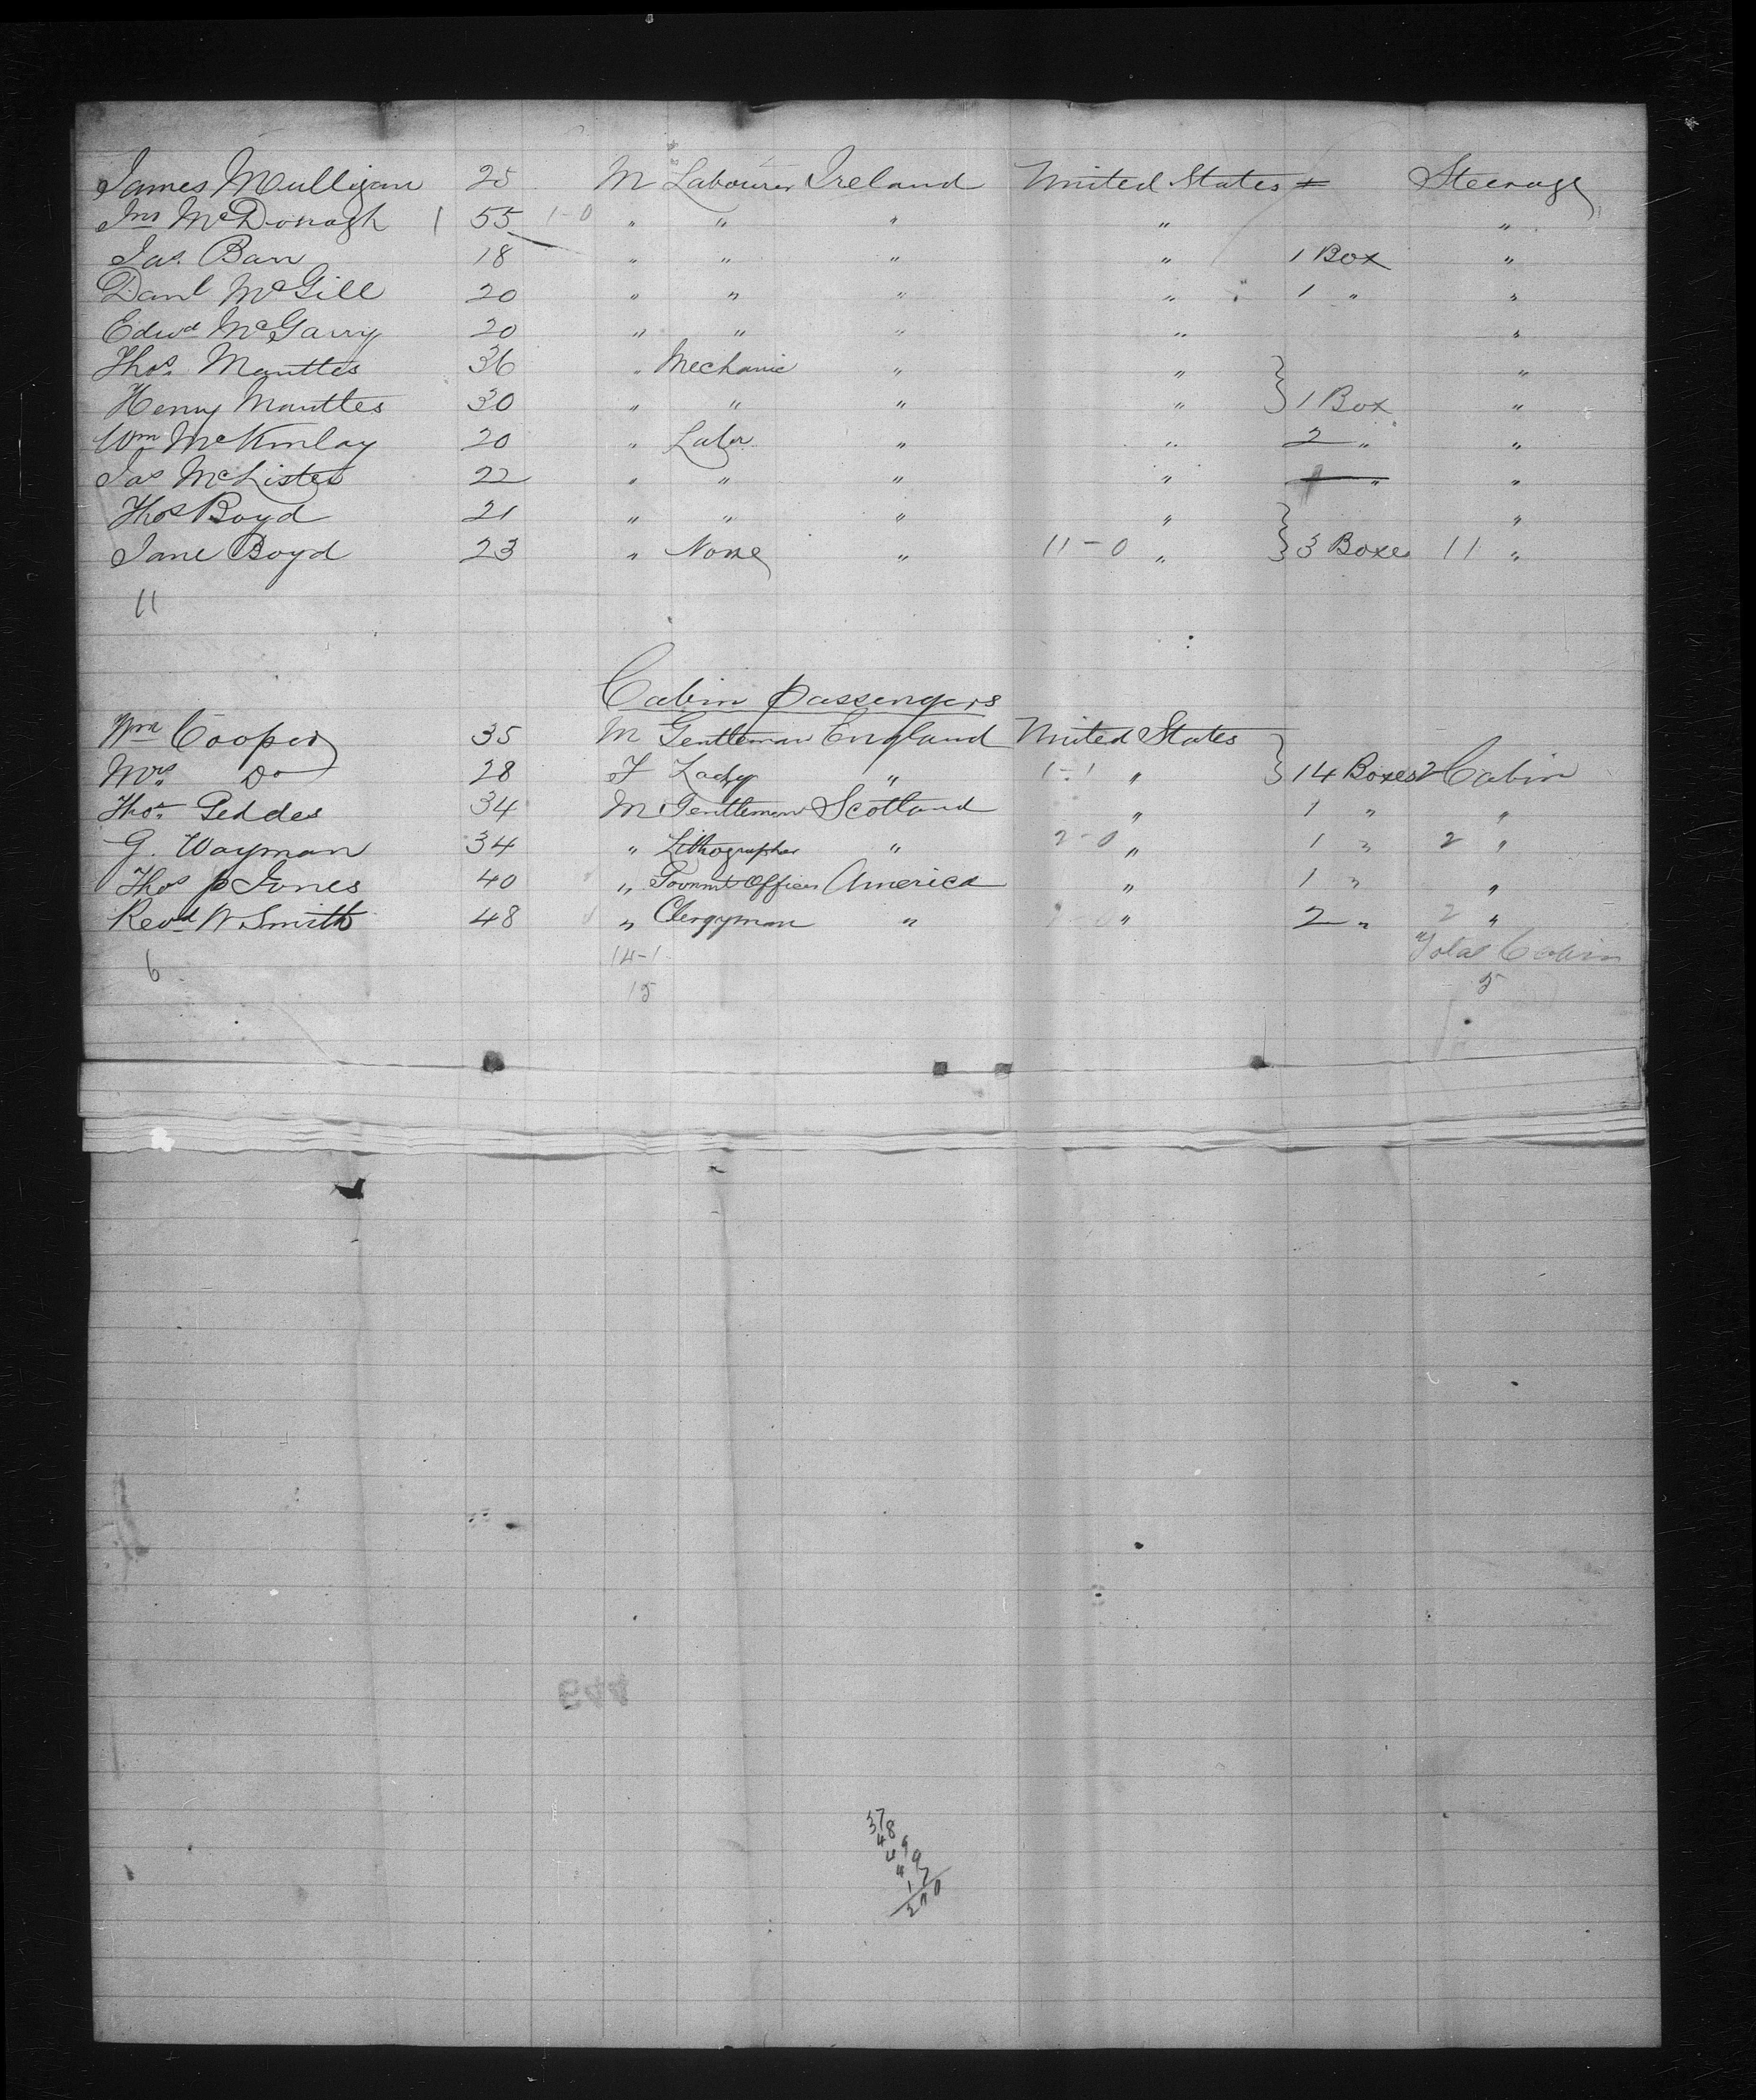 James Mulligan 25 M Labourer Ireland United States Steerage
Jno McDonagh 1 55 1-0 " " " " "
Jas. Barr 18 " " " " 1 Box "
Danl McGill 20 " " " " 1 " "
Edwd McGarry 20 " " " " "
Thos. Manttes 36 " Mechanic " " "
Henry Manttes 30 " " " " 1 Box "
Wm McKinlay 20 " Labr " " 2 " "
Jas McLister 22 " " " " " "
Thos Boyd 21 " " " " "
Jane Boyd 23 " None " 11-0 " 3 Boxes 11 "
11
Cabin passengers
Wm Cooper 35 M Gentleman England United States
Mrs. Do 28 F Lady " 1-1 " 14 Boxes 2 Cabin
Thos. Geddes 34 M Gentleman Scotland " 1 " "
G. Wayman 34 " Lithographer " 2-0 " 1 " 2 "
Thos p Jones 40 " Govnmt Officer America " 1 " "
Revd W Smith 48 " Clergyman " " 2 " 2 "
6 14-1 Total Cabin
15 5
544
37
48
49
49
17
200